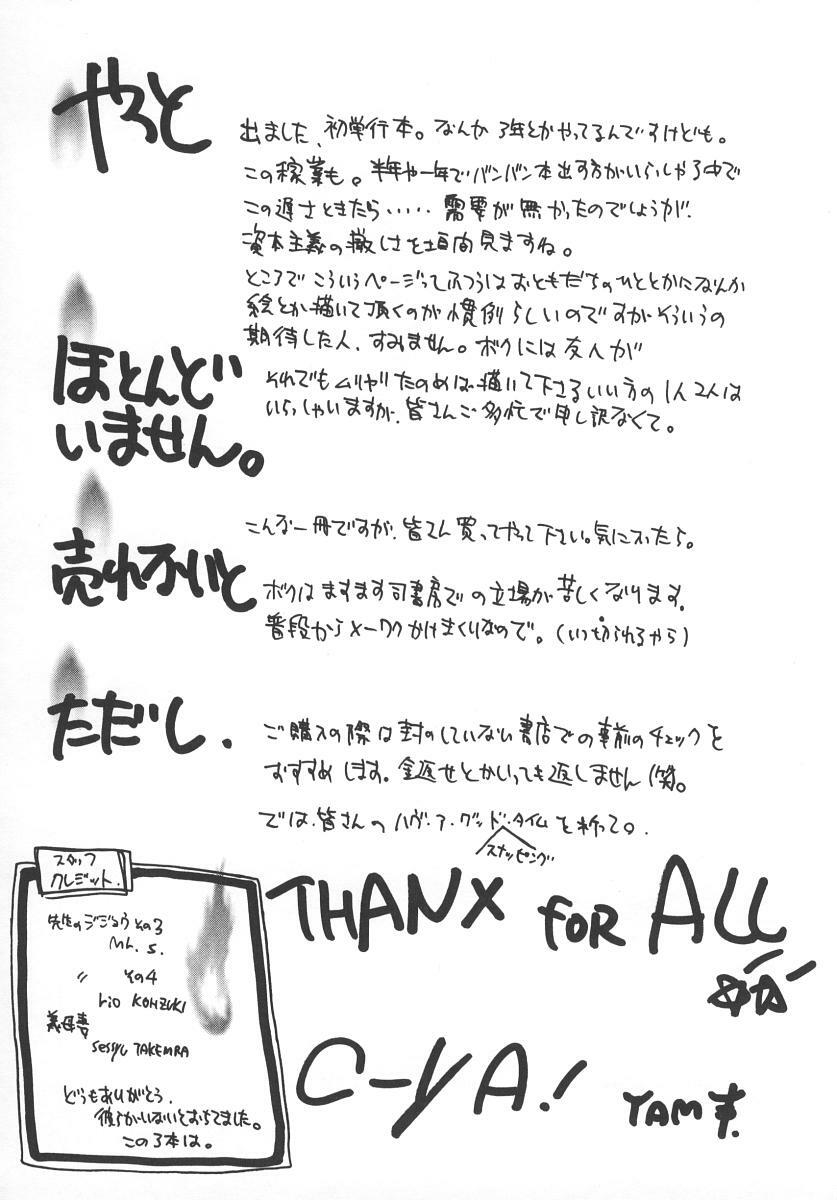 やっと
出ました、初単行本。なんか3年とかやってるんですけども。
この稼業も。半年や一年でバンバン本出す方がいらっしゃる中で
この遅さときたら‥‥‥需要が無かったのでしょうが、
資本主義の厳しさを垣間見ますね。
ところでこういうページってふつうはおともだちのひととかになんか
絵とか描いて頂くのが慣例らしいのですがそういうの
期待した人、すみません。ボクには友人が
ほとんど
いません。
それでもムリヤリたのめば描いて下さるいい方の1人2人は
いらっしゃいますが、皆さんご多忙で申し訳なくて。
こんな一冊ですが、皆さん買ってやって下さい。気に入ったら。
売れないと
ボクはますます司書房での立場が苦しくなります。
普段からメーワクかけまくりなので。(いつ切られるやら)
ただし、
ご購入の際は封のしていない書店での事前のチェックを
おすすめします。金返せとかいっても返しません(笑。
では、皆さんのハヴ・ア・グッド・タイムを祈って。
スナッピング
THANX FOR ALL
C-YA!
YAM
スタッフ
クレジット.
先生のジジョウ その3
Mr. S.
〃 その4
rio KOHZUKI
義母妻
sessyu TAKEMRA
どうもありがとう.
彼らがいないとおちてました。
この3本は。